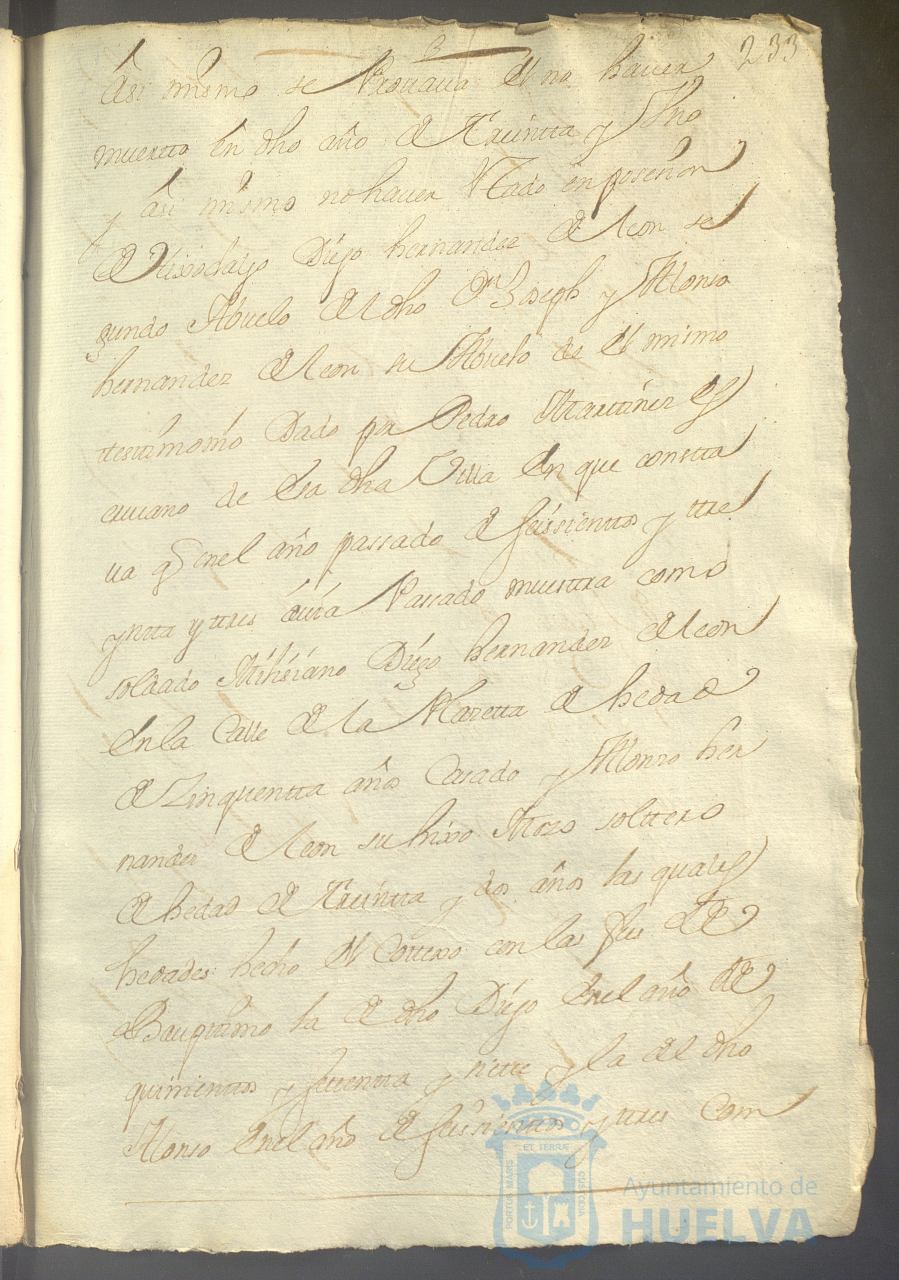 233
Asi mismo se Provava el no haver
muertto en dho año de treintta y
y Asi mismo no haver estado en poseçion
de Hixodalgo Diego hernandez de leon se
gundo Abuelo del dho Dn Joseph y Alonso
hernandez de leon su Abuelo de el mismo
testimonio Dado por Pedro Martinez es
crivano de esa dha Villa en que constta
va q enel año passado de seissienttos y ttre
yntta y ttres avia Passado muestra como
soldado Miliciano Diego hernandez de leon
en la Calle de la Plazetta de hedad
de Zinquentta años Casado y Alonso her
nandez de leon su hixo Mozo solttero
de hedad de treintta y dos años las quales
hedades hecho el Cottexo con las fees de
Bauptismo la de dho Diego enel año de
quinienttos y settentta y siette y la del dho
Alonso enel año de seissienttos y ttres Com
PORTUS MARIS ET TERRÆ CUSTODIA
Ayuntamiento de
HUELVA